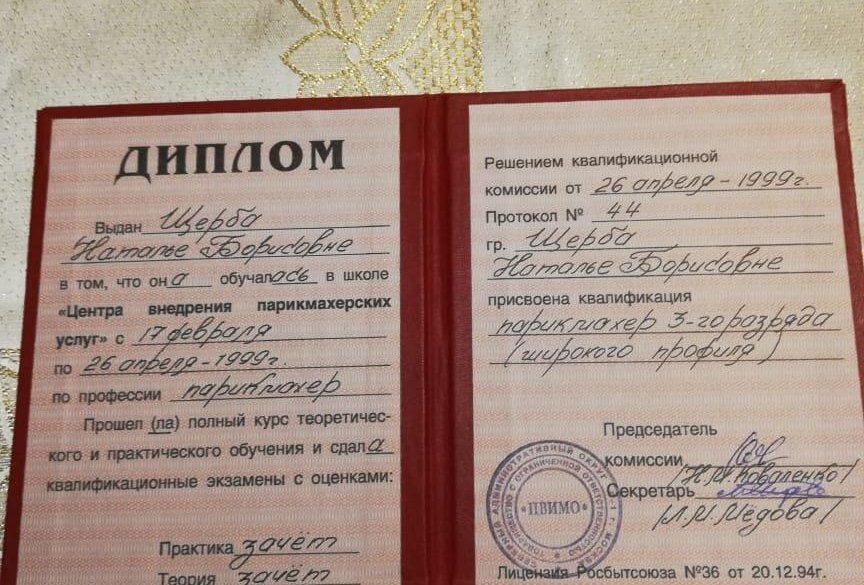 ДИПЛОМ
Выдан Щерба
Наталье Борисовне
в том, что она обучалась в школе
«Центра внедрения парикмахерских
услуг» с 17 февраля
по 26 апреля - 1999г.
по профессии парикмахер
Прошел (ла) полный курс теоретичес-
кого и практического обучения и сдала
квалификационные экзамены с оценками:
Практика зачёт
Теория зачёт
Решением квалификационной
комиссии от 26 апреля - 1999г.
Протокол № 44
гр. Щерба
Наталье Борисовне
присвоена квалификация
парикмахер 3-го разряда
(широкого профиля)
Председатель
комиссии
/Н.М.Коваленко/
Секретарь
/Л.М.Мёдова/
Лицензия Росбытсоюза №36 от 20.12.94г.
АДМИНИСТРАТИВНЫЙ ОКРУГ
ТОВАРИЩЕСТВО С ОГРАНИЧЕННОЙ ОТВЕТСТВЕННОСТЬЮ
«ПВИМО»